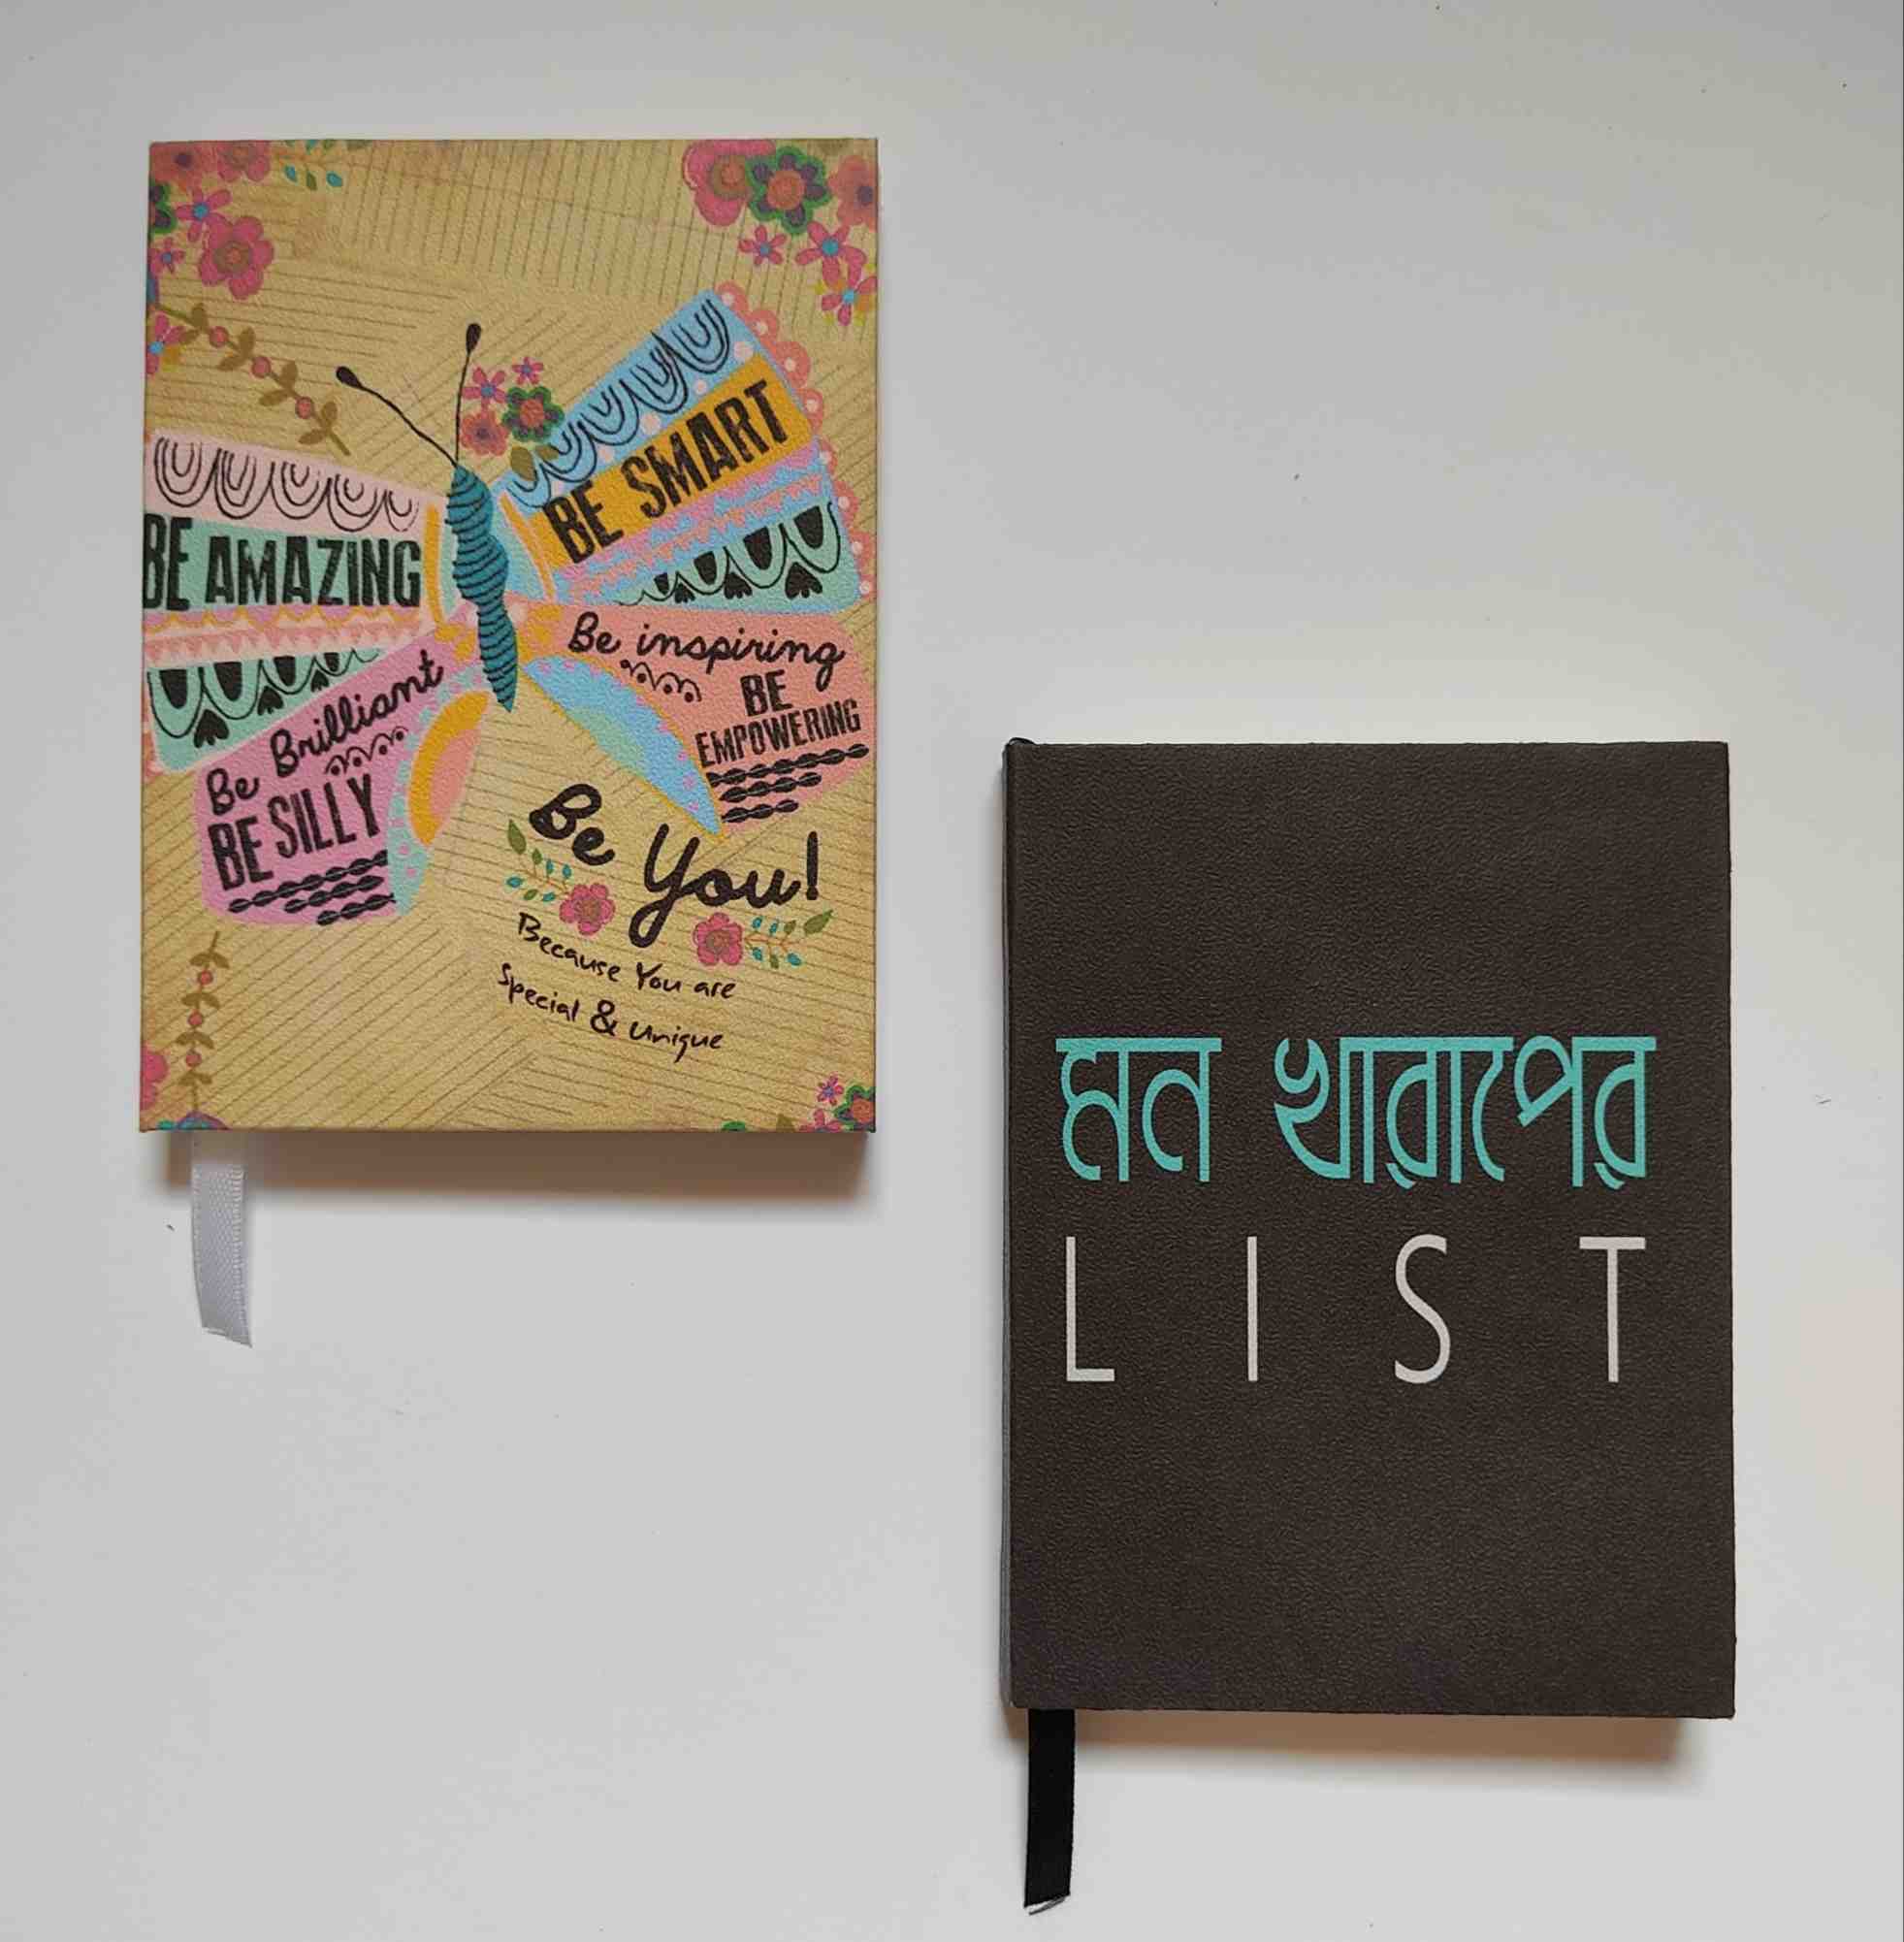 BE SMART
BE AMAZING
Be inspiring
BE
EMPOWERING
Be Brilliant
BE SILLY
Be You!
Because You are
Special & Unique
মন খারাপের
LIST